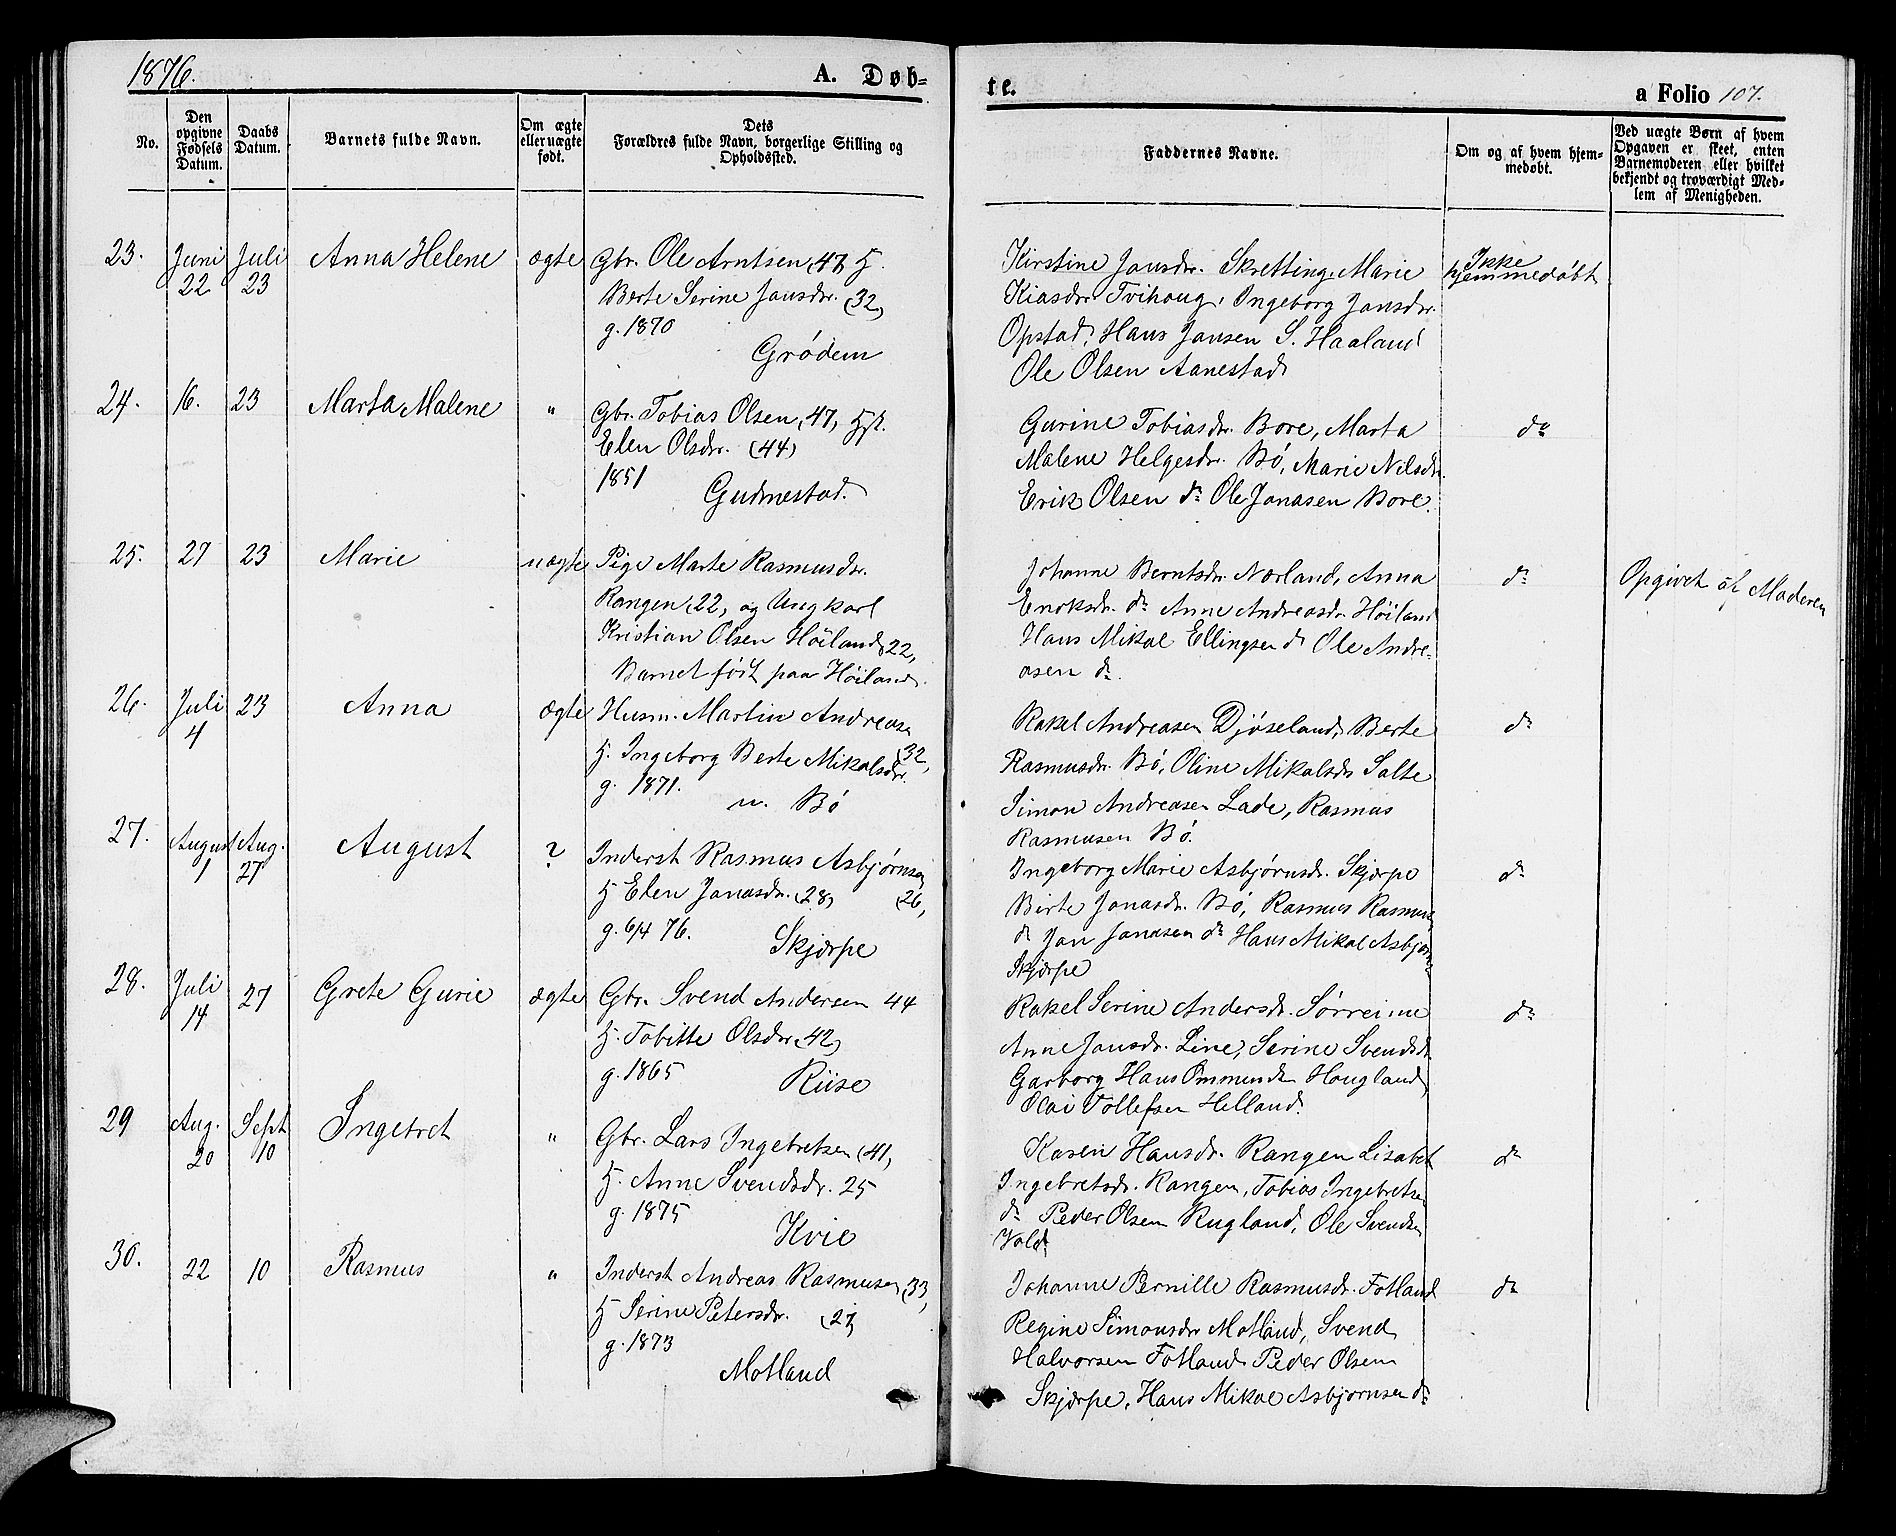 1876.
A. Døb=
No.
Den opgivne Fødsels Datum.
Daabs Datum.
Barnets fulde Navn.
Om ægte eller uægte født.
Dets Forældres fulde Navn, borgerlige Stilling og Opholdssted.
23. Juni 22 Juli 23 Anna Helene ægte Gbr. Ole Arntsen (47) H.
Berte Serine Jansdr. (32)
g. 1870
Grødem
24. 16. 23 Marta Malene " Gbr. Tobias Olsen (47)
Elen Olsdr. (44)
1851
Gudmestad.
25. 27 23 Marie uægte Pige Marte Rasmusdr.
Rangen (22) og Ungkarl
Kristian Olsen Höiland (22)
Barnet født paa Höiland.
26. Juli 4 23 Anna ægte Husm. Martin Andreasen (32)
H. Ingeborg Berte Mikalsdr.
g. 1871.
n. Bö
27. August 1 Aug. 27 August ? Inderst Rasmus Asbjörnsen (26)
H Elen Jonasdr. (28)
g. 6/4 76.
Skjærpe
28. Juli 14 27 Grete Gurie ægte Gbr. Svend Andersen 44
H. Tobitte Olsdr. (42)
g. 1865
Riise
29 Aug. 20 Sept 10 Ingebret " Gbr. Lars Ingebretsen (41)
H. Anne Svendsdr. 25
g. 1875
Kvie
30. 22 10 Rasmus " Inderst Andreas Rasmusen (33)
H Serine Petersdr. (27)
g. 1873
Motland
te.
a Folio 107.
Faddernes Navne.
Om og af hvem hjemmedøbt.
Ved uægte Børn af hvem Opgaven er skeet, enten Barnemoderen eller hvilket bekjendt og troværdigt Medlem af Menigheden.
Kirstine Jansdr. Skretting, Marie
Kiasdr. Tvihoug, Ingeborg Jansdr.
Opstad, Hans Jansen S. Haaland
Ole Olsen Aanestad
Ikke hjemmedöbt
Gurine Tobiasdr. Bore, Marta
Malene Helgesdr. Bö, Marie Nilsdr.
Erik Olsen do Ole Jonasen Bore.
do
Johanne Berntsdr. Nærland, Anna
Enoksdr. do Anne Andreasdr. Höiland
Hans Mikal Ellingsen do Ole Andre-
asen do.
do
Opgivet af Moderen
Rakel Andreasen Djöseland, Berte
Rasmusdr. Bö, Oline Mikalsdr Salte
Simon Andreasen Lade, Rasmus
Rasmusen Bö.
do
Ingeborg Marie Asbjörnsdr. Skjærpe
Birte Jonasdr. Bö, Rasmus Rasmusen
do Jan Jonasen do Hans Mikal Asbjörns.
Skjærpe
do
Rakel Serine Andersdr. Sørreime
Anne Jansdr. Line, Serine Svendsdr
Garborg Hans Ommundsen Hougland
Olai Tollefsen Helland.
do
Karen Hansdr. Rangen Lisabet
Ingebretsdr. Rangen, Tobias Ingebretsen
do Peder Olsen Rugland, Ole Svendsen
Vold
do
Johanne Pernille Rasmusdr. Fotland
Regine Simonsdr Motland, Svend
Halvorsen Fotland Peder Olsen
Skjærpe, Hans Mikal Asbjørnsen do
do